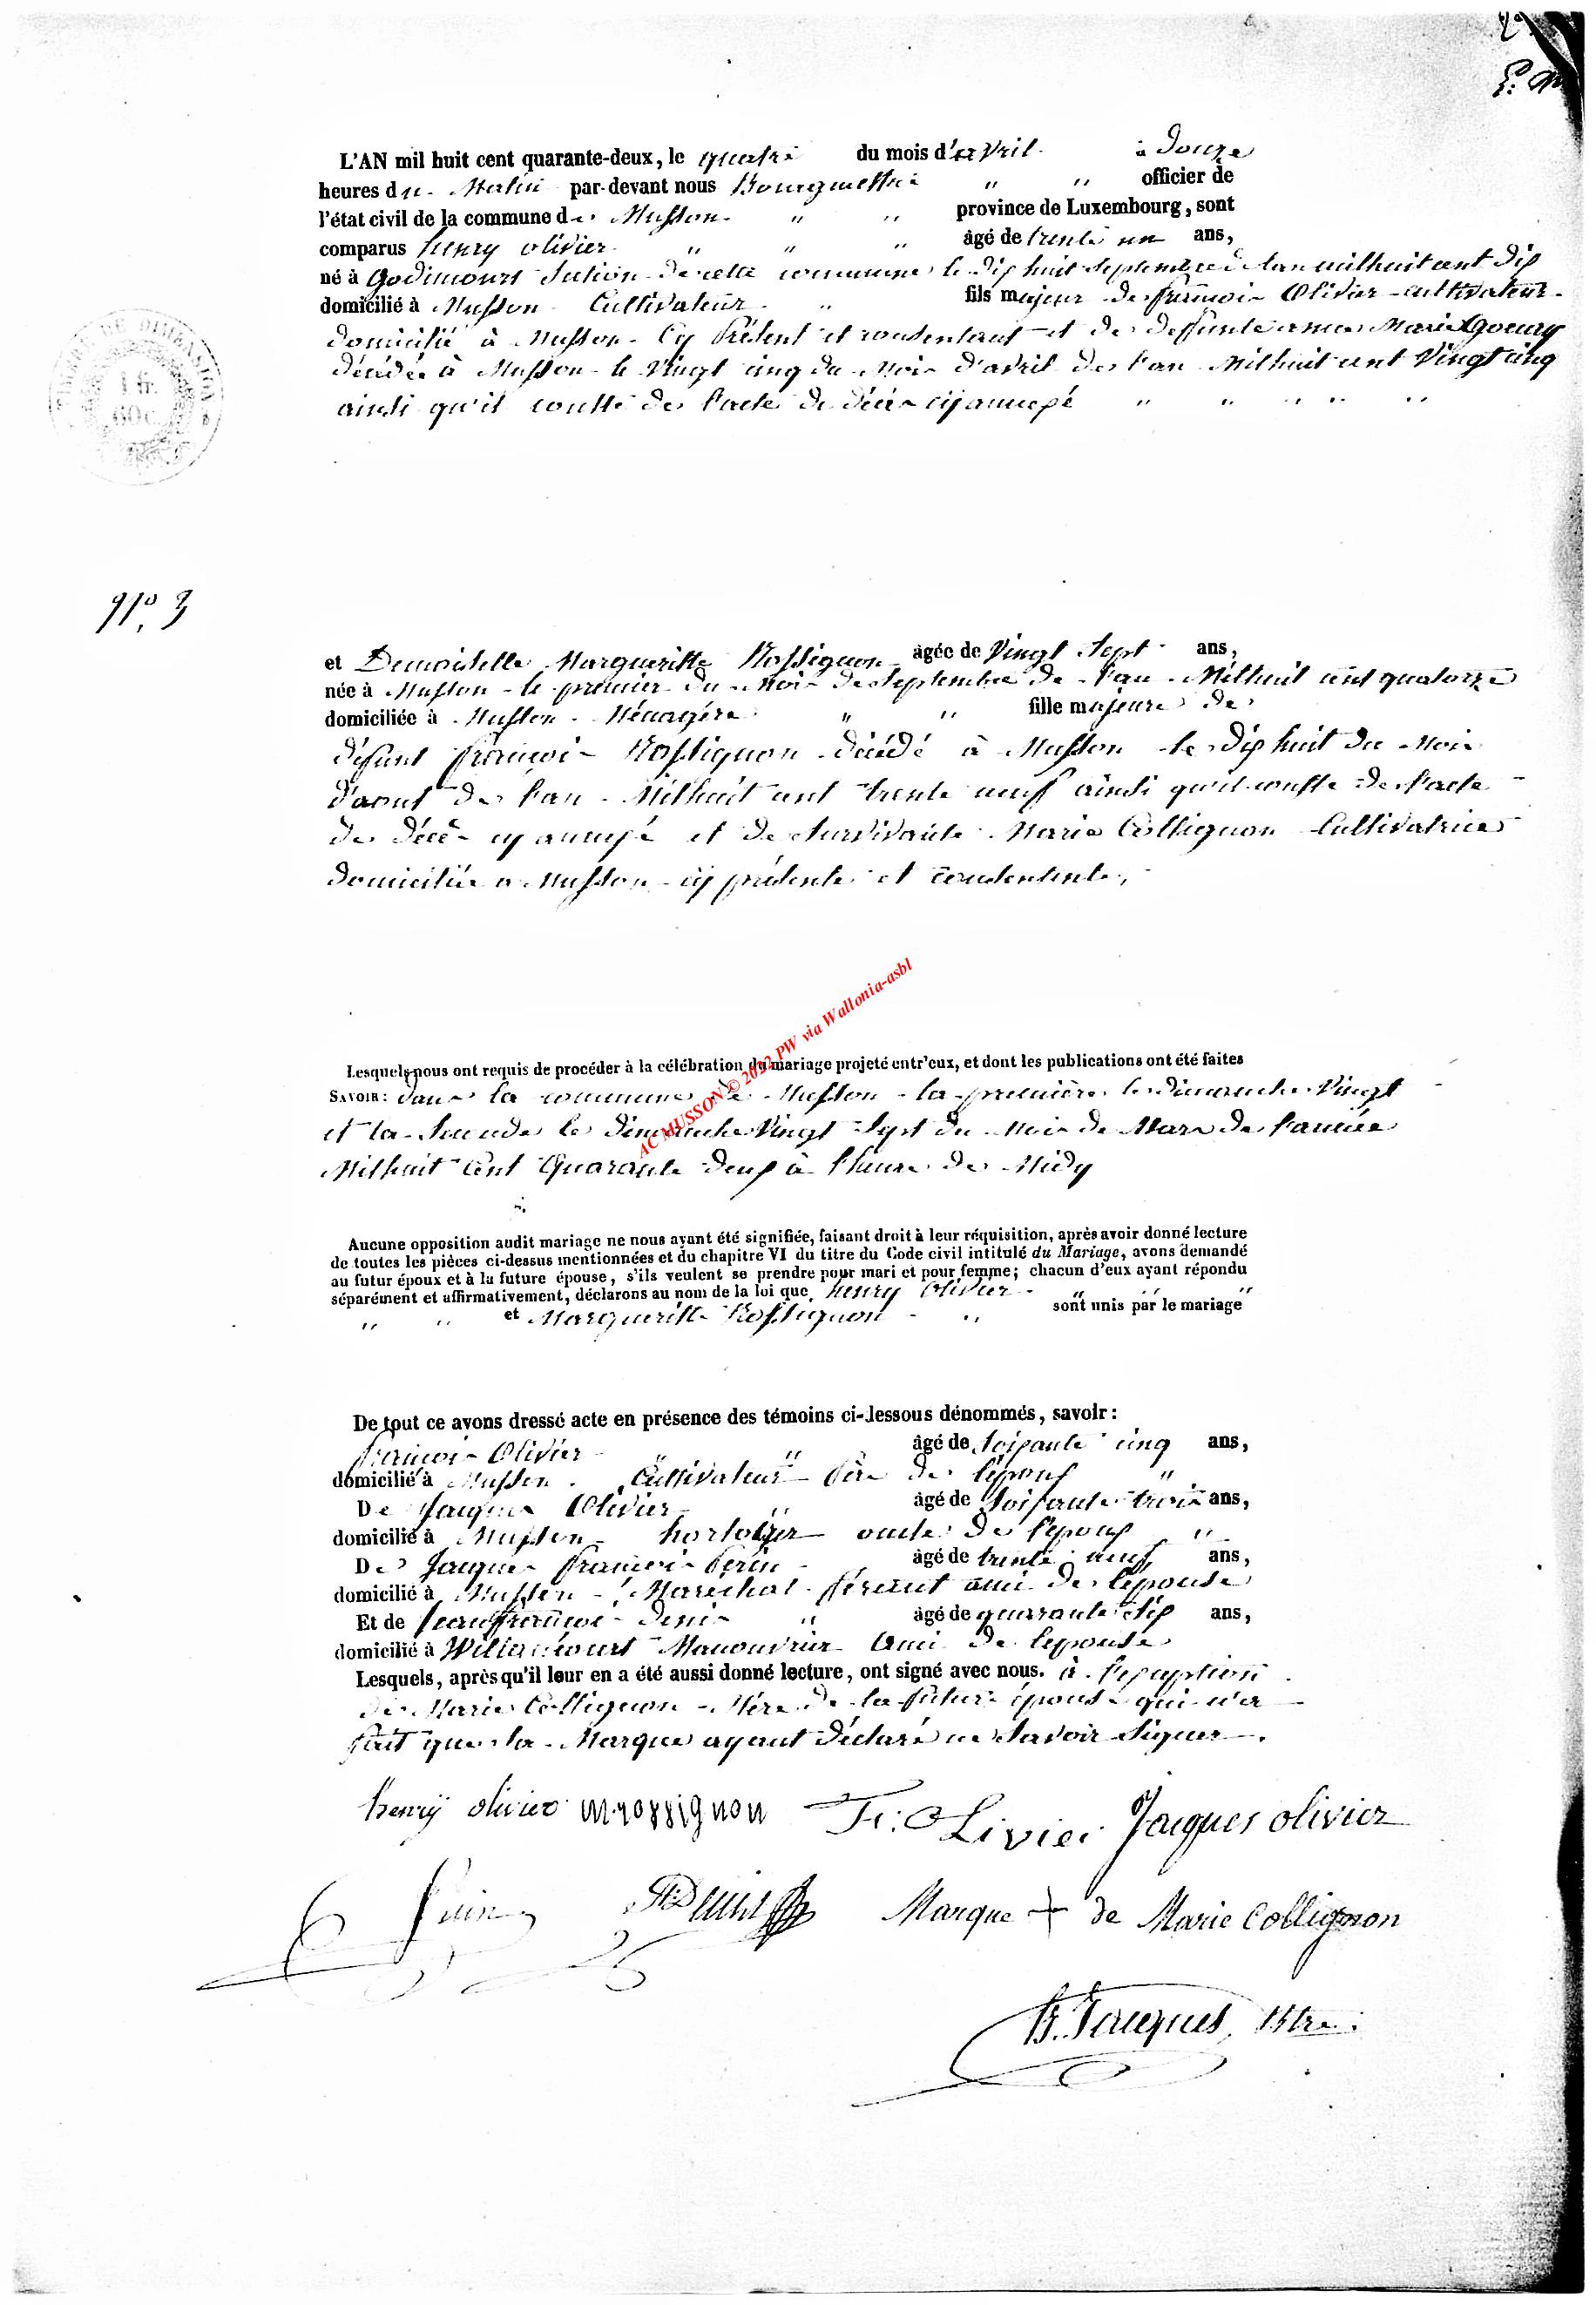 E. 
L'AN mil huit cent quarante-deux, le quatre du mois d'avril à Douze
heures du Matin par-devant nous Bourguemestre " " officier de
l'état civil de la commune de Musson " " province de Luxembourg, sont
comparus henry olivier " " " âgé de trente un ans,
né à Godincourt Section de cette commune le Dix huit Septembre de l'an milhuit cent Dix
domicilié à Musson Cultivateur " fils majeur de françois Olivier cultivateur
domicilié à Musson Cy Présent et consentant et de deffunte Marie Goeury
décédée à Musson le Vingt cinq du Mois d'avril de l'an Milhuit cent Vingt cinq
ainsi qu'il conste de l'acte de décès cy annexé " " " " "
TIMBRE DE DIMENSION
1 fr.
60 c.
N° 3
et Demoiselle Margueritte Rossignon agée de Vingt Sept ans,
née à Musson le premier du Mois de Septembre de l'an Milhuit cent quatorze
domiciliée à Musson Ménagère " " fille majeure de
défunt françois Rossignon décédé à Musson le Dix huit du Mois
d'aout de l'an Milhuit cent trente neuf ainsi qu'il conste de l'acte
de décès cy annexé et de survivante Marie Collignon Cultivatrice
domiciliée a Musson cy présente et consentente,
AC MUSSON © 2022 PW via Wallonia-asbl
Lesquels nous ont requis de procéder à la célébration du mariage projeté entr'eux, et dont les publications ont été faites
SAVOIR : dans la commune de Musson la première le Dimanche Vingt
et la Seconde le Dimanche Vingt Sept du Mois de Mars de l'année
Milhuit Cent Quarante Deux à l'heure de Midy
Aucune opposition audit mariage ne nous ayant été signifiée, faisant droit à leur réquisition, après avoir donné lecture
de toutes les pièces ci-dessus mentionnées et du chapitre VI du titre du Code civil intitulé du Mariage, avons demandé
au futur époux et à la future épouse, s'ils veulent se prendre pour mari et pour femme; chacun d'eux ayant répondu
séparément et affirmativement, déclarons au nom de la loi que henry Olivier " " "
" " et Margueritte Rossignon " sont unis par le mariage
De tout ce avons dressé acte en présence des témoins ci-dessous dénommés, savoir :
françois Olivier " " âgé de Soixante cinq ans,
domicilié à Musson Cultivateur Père de l'époux "
De Jacques Olivier " âgé de Soixante trois ans,
domicilié à Musson horloger oncle de l'époux "
De Jacques françois Perin âgé de trente neuf ans,
domicilié à Musson Maréchal férant ami de l'épouse
Et de Jean françois denis " âgé de quarante Six ans,
domicilié à Willancourt Manouvrier Ami de l'épouse
Lesquels, après qu'il leur en a été aussi donné lecture, ont signé avec nous. à l'exception
de Marie Collignon Mère de la future épouse qui n'a
fait que sa Marque ayant déclaré ne Savoir Signer.
henry olivier m rossignon Fr: OLivier Jacques olivier
Perin Denis Marque + de Marie Collignon
B. Jacques, Btre.